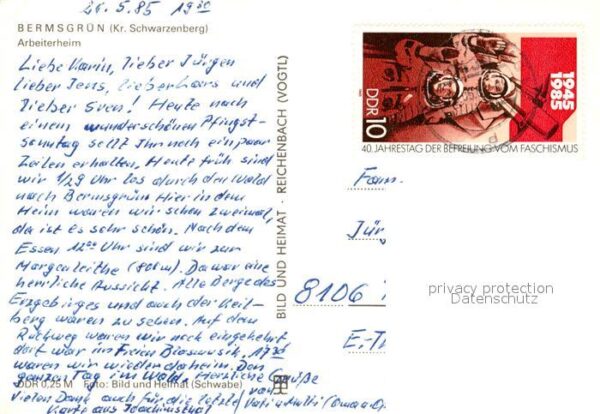 26.5.85 19³⁰
BERMSGRÜN (Kr. Schwarzenberg)
Arbeiterheim
Liebe Karin, lieber Jürgen
lieber Jens, lieber Lars und
lieber Sven! Heute nach
einem wunderschönen Pfingst-
sonntag sollt Ihr noch ein paar
Zeilen erhalten. Heute früh sind
wir 1/2 9 Uhr los durch den Wald
nach Bermsgrün. Hier in dem
Heim waren wir schon zweimal,
da ist es sehr schön. Nach dem
Essen 12⁰⁰ Uhr sind wir zur
Morgenleithe (800m). Da war eine
herrliche Aussicht. Alle Berge des
Erzgebirges und auch der Keil-
berg waren zu sehen. Auf dem
Rückweg waren wir noch eingekehrt
dort war im Freien Blasmusik. 17³⁰
waren wir wieder daheim. Den
ganzen Tag im Wald. Herzliche Grüße
vielen Dank auch für die letzte von
Karte aus
DDR 0,25 M Foto: Bild und Heimat (Schwabe)
BILD UND HEIMAT · REICHENBACH (VOGTL)
DDR 10
1945
1985
40. JAHRESTAG DER BEFREIUNG VOM FASCHISMUS
Fam.
Jür
8106
E.-T
privacy protection
Datenschutz